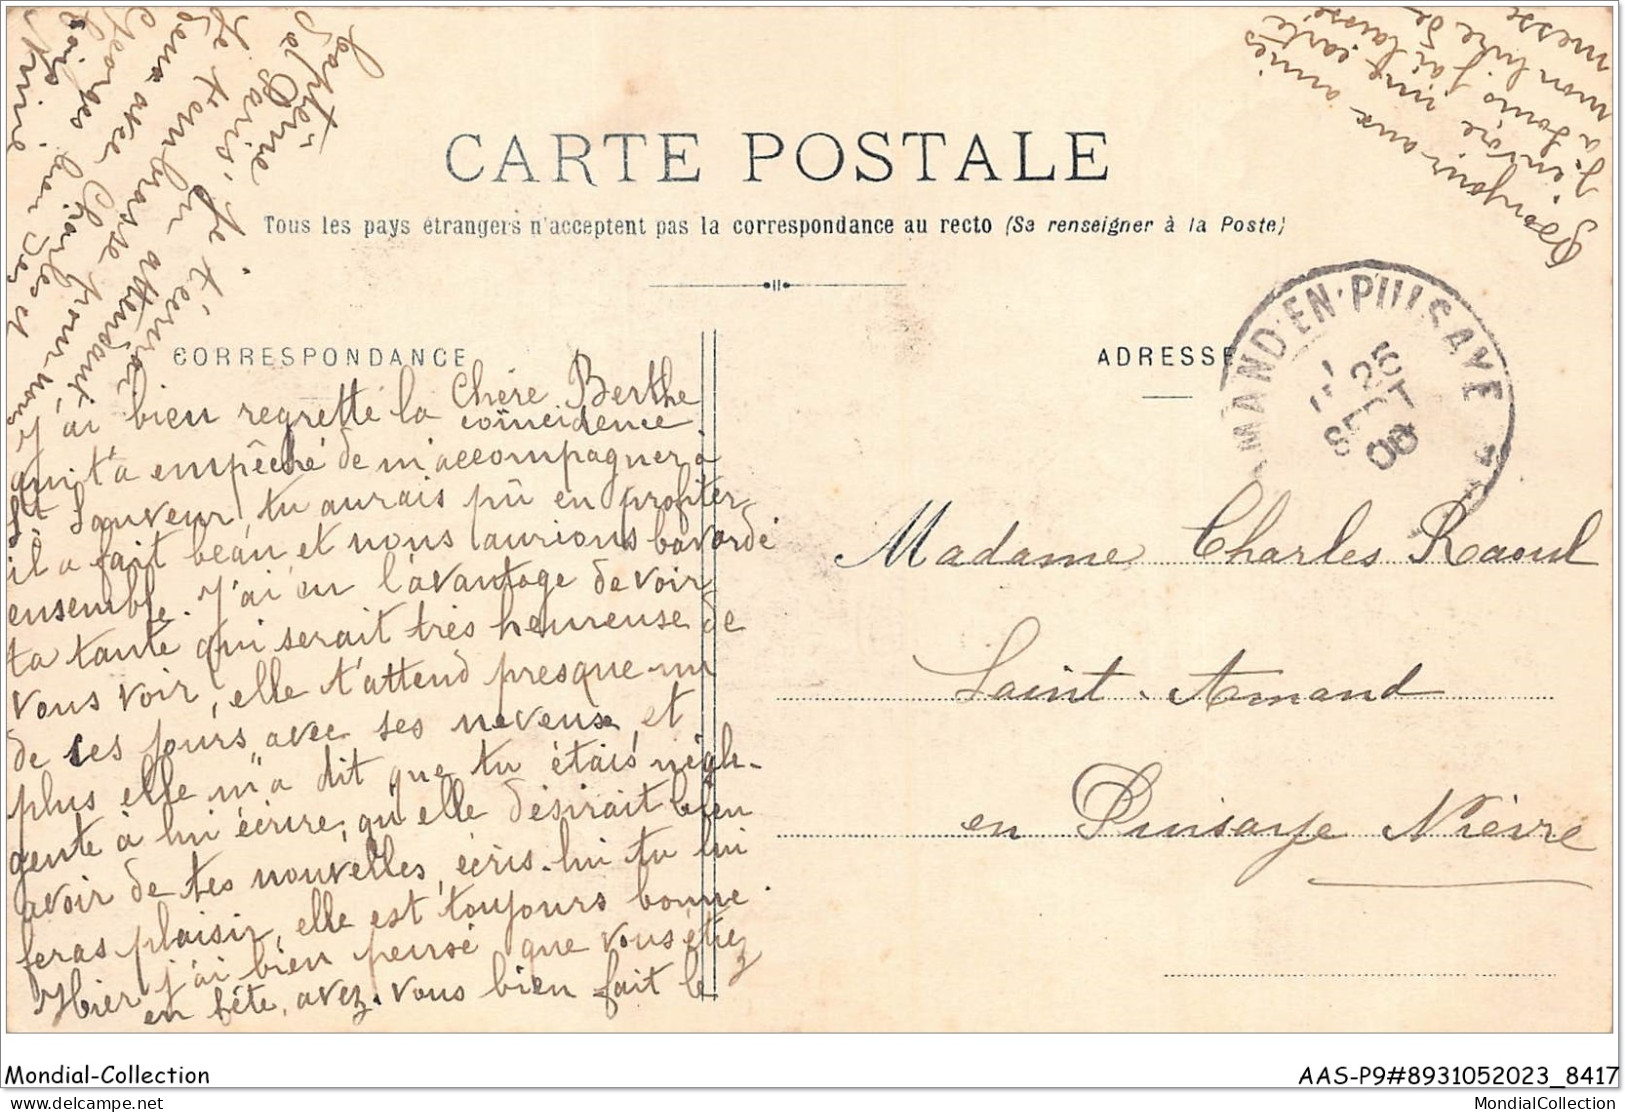 CARTE POSTALE
Tous les pays étrangers n'acceptent pas la correspondance au recto (Se renseigner à la Poste)
CORRESPONDANCE
ADRESSE
MAND-EN-PUISAYE
25
SEPT
06
Chère Berthe
J'ai bien regretté la coïncidence
qui t'a empêché de m'accompagner à
St Sauveur, tu aurais pû en profiter
il a fait beau, et nous aurions bavardé
ensemble. J'ai eu l'avantage de voir
ta tante qui serait très heureuse de
vous voir, elle t'attend presque un
de ces jours, avec ses neveux, et
plus elle m'a dit que tu étais négli-
gente à lui écrire, qu'elle désirait bien
avoir de tes nouvelles, écris-lui tu lui
feras plaisir, elle est toujours bonne.
Hier j'ai bien pensé que vous étiez
en fête, avez-vous bien fait le
je t'écrirai
en attendant
Je t'embrasse pour nous
deux avec Charles et
Georges bien des
Bonjour aux amies
J'envoie une carte
à Louis j'ai laissé
mon livre de
messe
Madame Charles Raoul
Saint-Amand
en Puisaye Nièvre
Mondial-Collection
AAS-P9#8931052023_8417
delcampe.net
MondialCollection